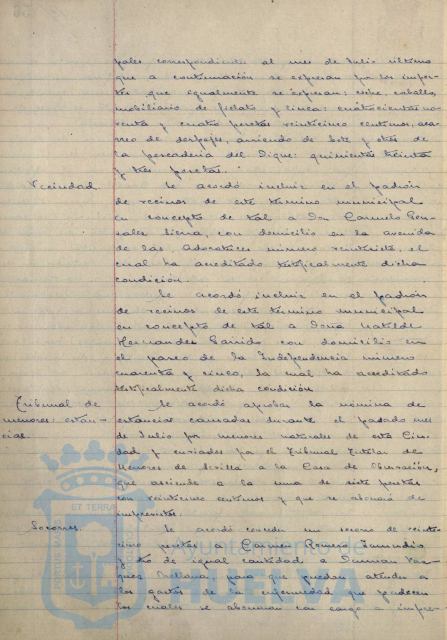 pales correspondiente al mes de Julio último
que a continuación se expresan por los impor-
tes que igualmente se expresan:
mobiliario de fielato y línea: cuatrocientas no-
venta y cuatro pesetas veinticinco centimos, aca-
rreo de despojos, arriendo de bote y otros de
la pescadería del Dique: quinientas treinta
y tres pesetas.
Vecindad. Se acordó incluir en el padrón
de vecinos de este término municipal
en concepto de tal a Don Carmelo Gon-
zales Sierra, con domicilio en la avenida
de las Adoratrices número veintisiete, el
cual ha acreditado testificalmente dicha
condición.
Se acordó incluir en el padrón
de vecinos de este término municipal
en concepto de tal a Doña Matilde
Hernandez Garrido con domicilio en
el paseo de la Independencia número
cuarenta y cinco, la cual ha acreditado
testificalmente dicha condición
Tribunal de Se acordó aprobar la nómina de
menores: estan- estancias causadas durante el pasado mes
cias. de Julio por menores naturales de esta Ciu-
dad y enviados por el Tribunal Tutelar de
Menores de Sevilla a la Casa de Observación,
que asciende a la suma de siete pesetas
con veinticinco centimos y que se abonará de
imprevistos.
Socorros. Se acordó conceder un socorro de veinti-
cinco pesetas a Carmen Romero
y otro de igual cantidad a Vaz-
quez Orellana para que puedan atender a
los gastos de la enfermedad que padecen
los cuales se abonaran con cargo a impre-
ET TERRA
Ayuntamiento de
HUELVA